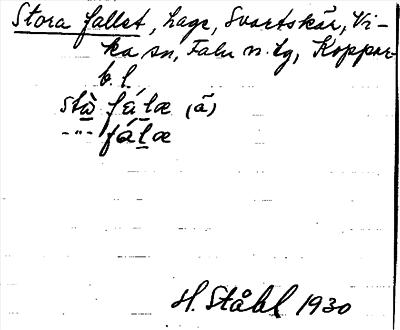 Stora fallet, Lage, Svartskär, Vi-
ka sn, Falu n. lg, Koppar-
b. l.
stὰ fálæ (ä)
-"- fálæ
H. Ståhl 1930